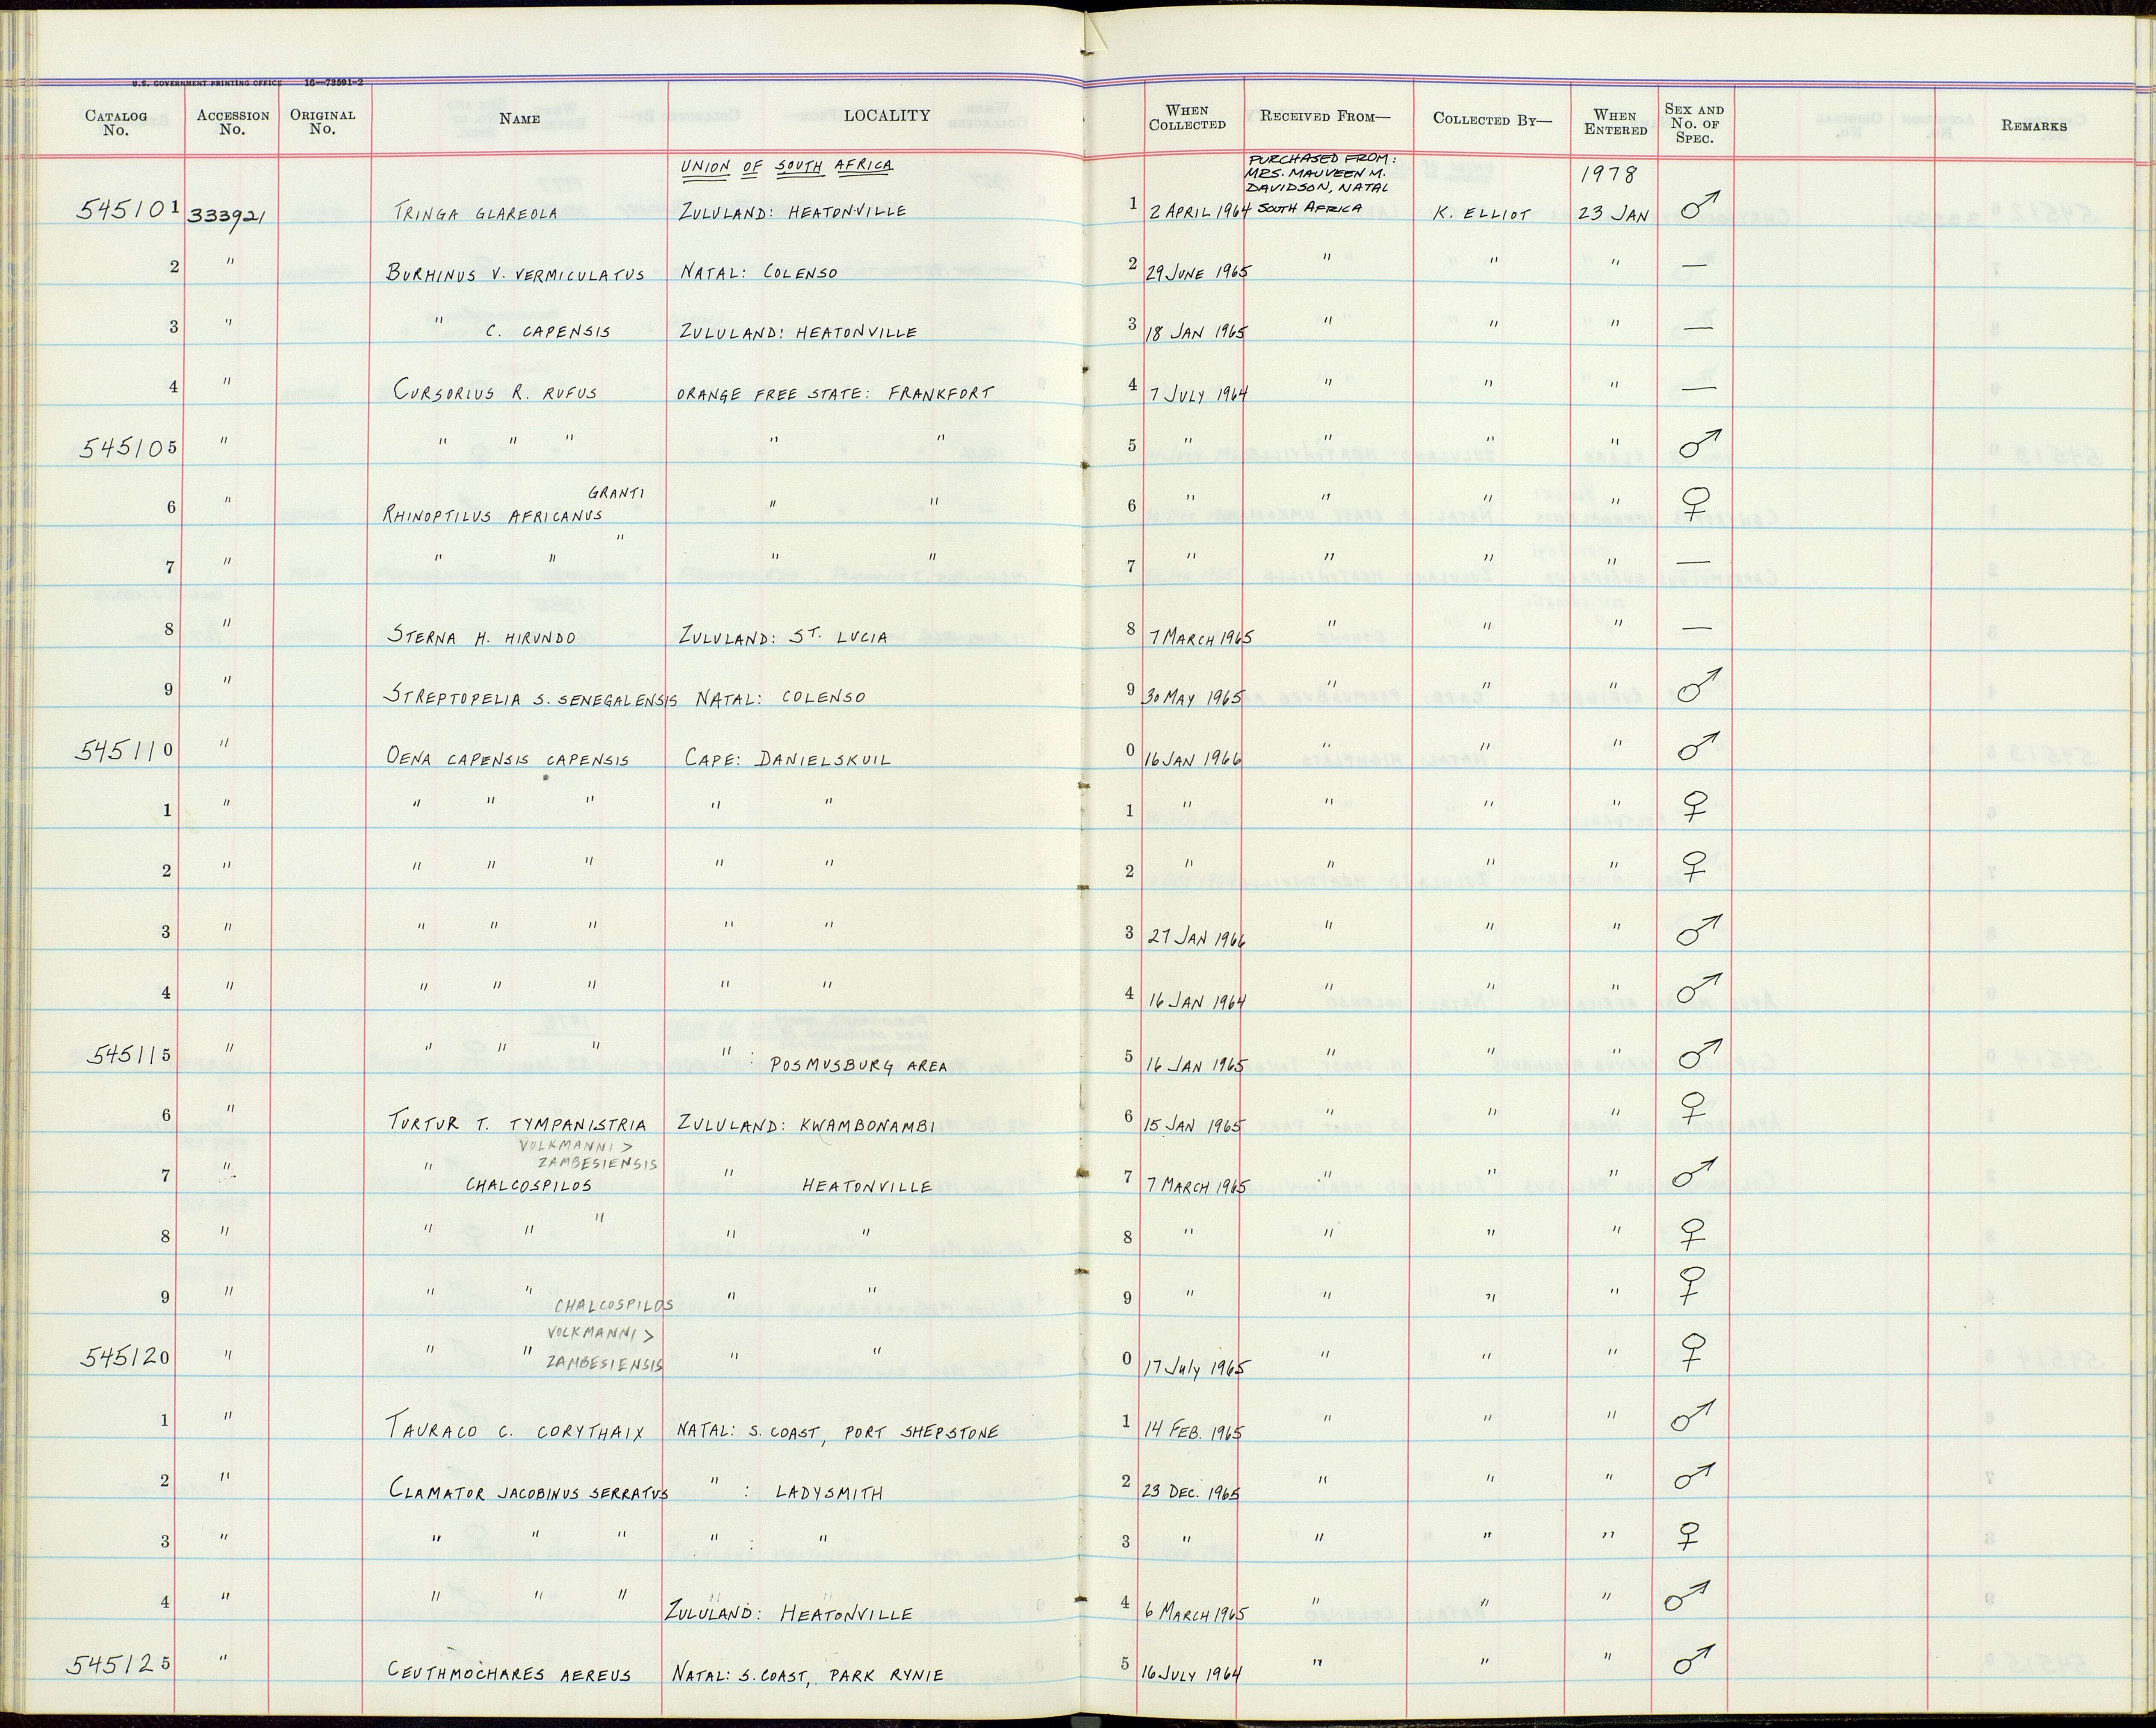 U.S. GOVERNMENT PRINTING OFFICE 16—73591-2
CATALOG No. ACCESSION No. ORIGINAL No. NAME LOCALITY WHEN COLLECTED RECEIVED FROM— COLLECTED BY— WHEN ENTERED SEX AND No. OF SPEC. REMARKS
UNION OF SOUTH AFRICA PURCHASED FROM: MRS. MAUVEEN M. DAVIDSON, NATAL 1978
545101 333921 TRINGA GLAREOLA ZULULAND: HEATONVILLE 1 2 APRIL 1964 SOUTH AFRICA K. ELLIOT 23 JAN ♂
2 " BURHINUS V. VERMICULATUS NATAL: COLENSO 2 29 JUNE 1965 " " " —
3 " " C. CAPENSIS ZULULAND: HEATONVILLE 3 18 JAN 1965 " " " —
4 " CURSORIUS R. RUFUS ORANGE FREE STATE: FRANKFORT 4 7 JULY 1964 " " " —
545105 " " " " " " 5 " " " " ♂
GRANTI
6 " RHINOPTILUS AFRICANUS " " 6 " " " " ♀
7 " " " " " " 7 " " " " —
8 " STERNA H. HIRUNDO ZULULAND: ST. LUCIA 8 7 MARCH 1965 " " " —
9 " STREPTOPELIA S. SENEGALENSIS NATAL: COLENSO 9 30 MAY 1965 " " " ♂
545110 " OENA CAPENSIS CAPENSIS CAPE: DANIELSKUIL 0 16 JAN 1966 " " " ♂
1 " " " " " " 1 " " " " ♀
2 " " " " " " 2 " " " " ♀
3 " " " " " " 3 27 JAN 1966 " " " ♂
4 " " " " " " 4 16 JAN 1964 " " " ♂
545115 " " " " " : POSMUSBURG AREA 5 16 JAN 1965 " " " ♂
6 " TURTUR T. TYMPANISTRIA ZULULAND: KWAMBONAMBI 6 15 JAN 1965 " " " ♀
VOLKMANNI >
ZAMBESIENSIS
7 " " CHALCOSPILOS " HEATONVILLE 7 7 MARCH 1965 " " " ♂
8 " " " " " " 8 " " " " ♀
9 " " " CHALCOSPILOS " " 9 " " " " ♀
VOLKMANNI >
545120 " " " ZAMBESIENSIS " " 0 17 July 1965 " " " ♀
1 " TAURACO C. CORYTHAIX NATAL: S. COAST, PORT SHEPSTONE 1 14 FEB. 1965 " " " ♂
2 " CLAMATOR JACOBINUS SERRATUS " : LADYSMITH 2 23 DEC. 1965 " " " ♂
3 " " " " " : " 3 " " " " ♀
4 " " " " ZULULAND: HEATONVILLE 4 6 MARCH 1965 " " " ♂
545125 " CEUTHMOCHARES AEREUS NATAL: S. COAST, PARK RYNIE 5 16 JULY 1964 " " " ♂